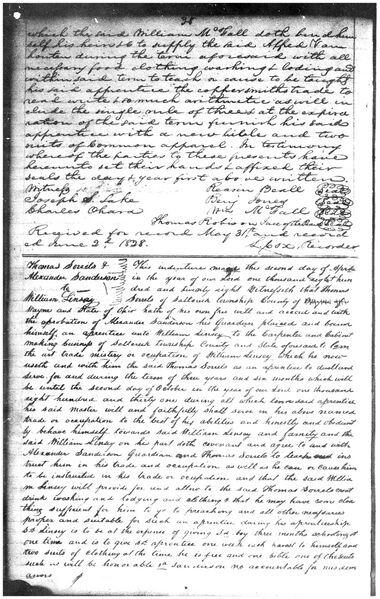 38
which the said William McFall doth bind him
self his heirs &c to supply the said Alfred Van
houten during the term aforesaid with all
necessary food & clothing washing & lodging and
within said term to teach or cause to be taught
his said apprentice the coppersmiths trade to
read write & so much arithmetic as will in
clude the single rule of three & at the expira
ration of the said term furnish his said
apprentice with a new bible and two
suits of common apparel. In testimony
whereof the parties to these presents have
hereunto set their hands & affixed their
seals the day & year first above written
Witness Reason Beall Seal
Joseph S. Lake Benj Jones Seal
Charles Ohara Wm McFall Seal
Thomas Robison
Received for record May 31st and record
ed June 2d 1828. Cox, Recorder
Thomas Sorels &
Alexander Sanderson
to
William Linsey
This indenture made this second day of
in the year of our Lord one thousand eight hun
dred and twenty eight Witnesseth that Thomas
Sorels of Saltcreek Township County of Wayne
Wayne and State of Ohio hath of his own free will and accord and with
the aprobation of Alexander Sanderson his Guardian placed and bound
himself an aprentice unto William Linsey to the Carpenter and Cabinet
making buisness of Saltcreek Township County and State aforesaid to Learn
the art trade mistery or occupation of William Linsey Which he now
useth and with him the said Thomas Sorels as an aprentice to dwell and
serve from and during the term of three years and six months which will
be until the second day of October in the year of our Lord one thousand
eight hundred and thirty one during all which term said aprentice
his said Master well and faithfully shall serve in his above named
trade or occupation to the best of his abilities and honestly and obedient
ly behave himself towards said William Linsey and family and the
said William Linsey on his part doth covenant and agree to and with
Alexander Sanderson Guardian and Thomas Sorels to
trust him in his trade and occupation as well as he can or cause him
to be instructed in his trade or occupation and that the said Willia
m Linsey will provide for and allow to the said Thomas Sorels meat
drink washing and lodging and clothing & that he may have some clo
thing sufficient for him to go to preaching and all other nessaries
proper and suitable for such an aprentice during his aprenticeship
Sd Linsey is to be at the expence of giving Sd boy three months schooling at
one time and is to give Sd aprentice one week each harvest to himself and
two suits of clothing at the time he is free and one bible one of the suits
such as will be honorable Sd Sanderson no accountable for misdem
eanors